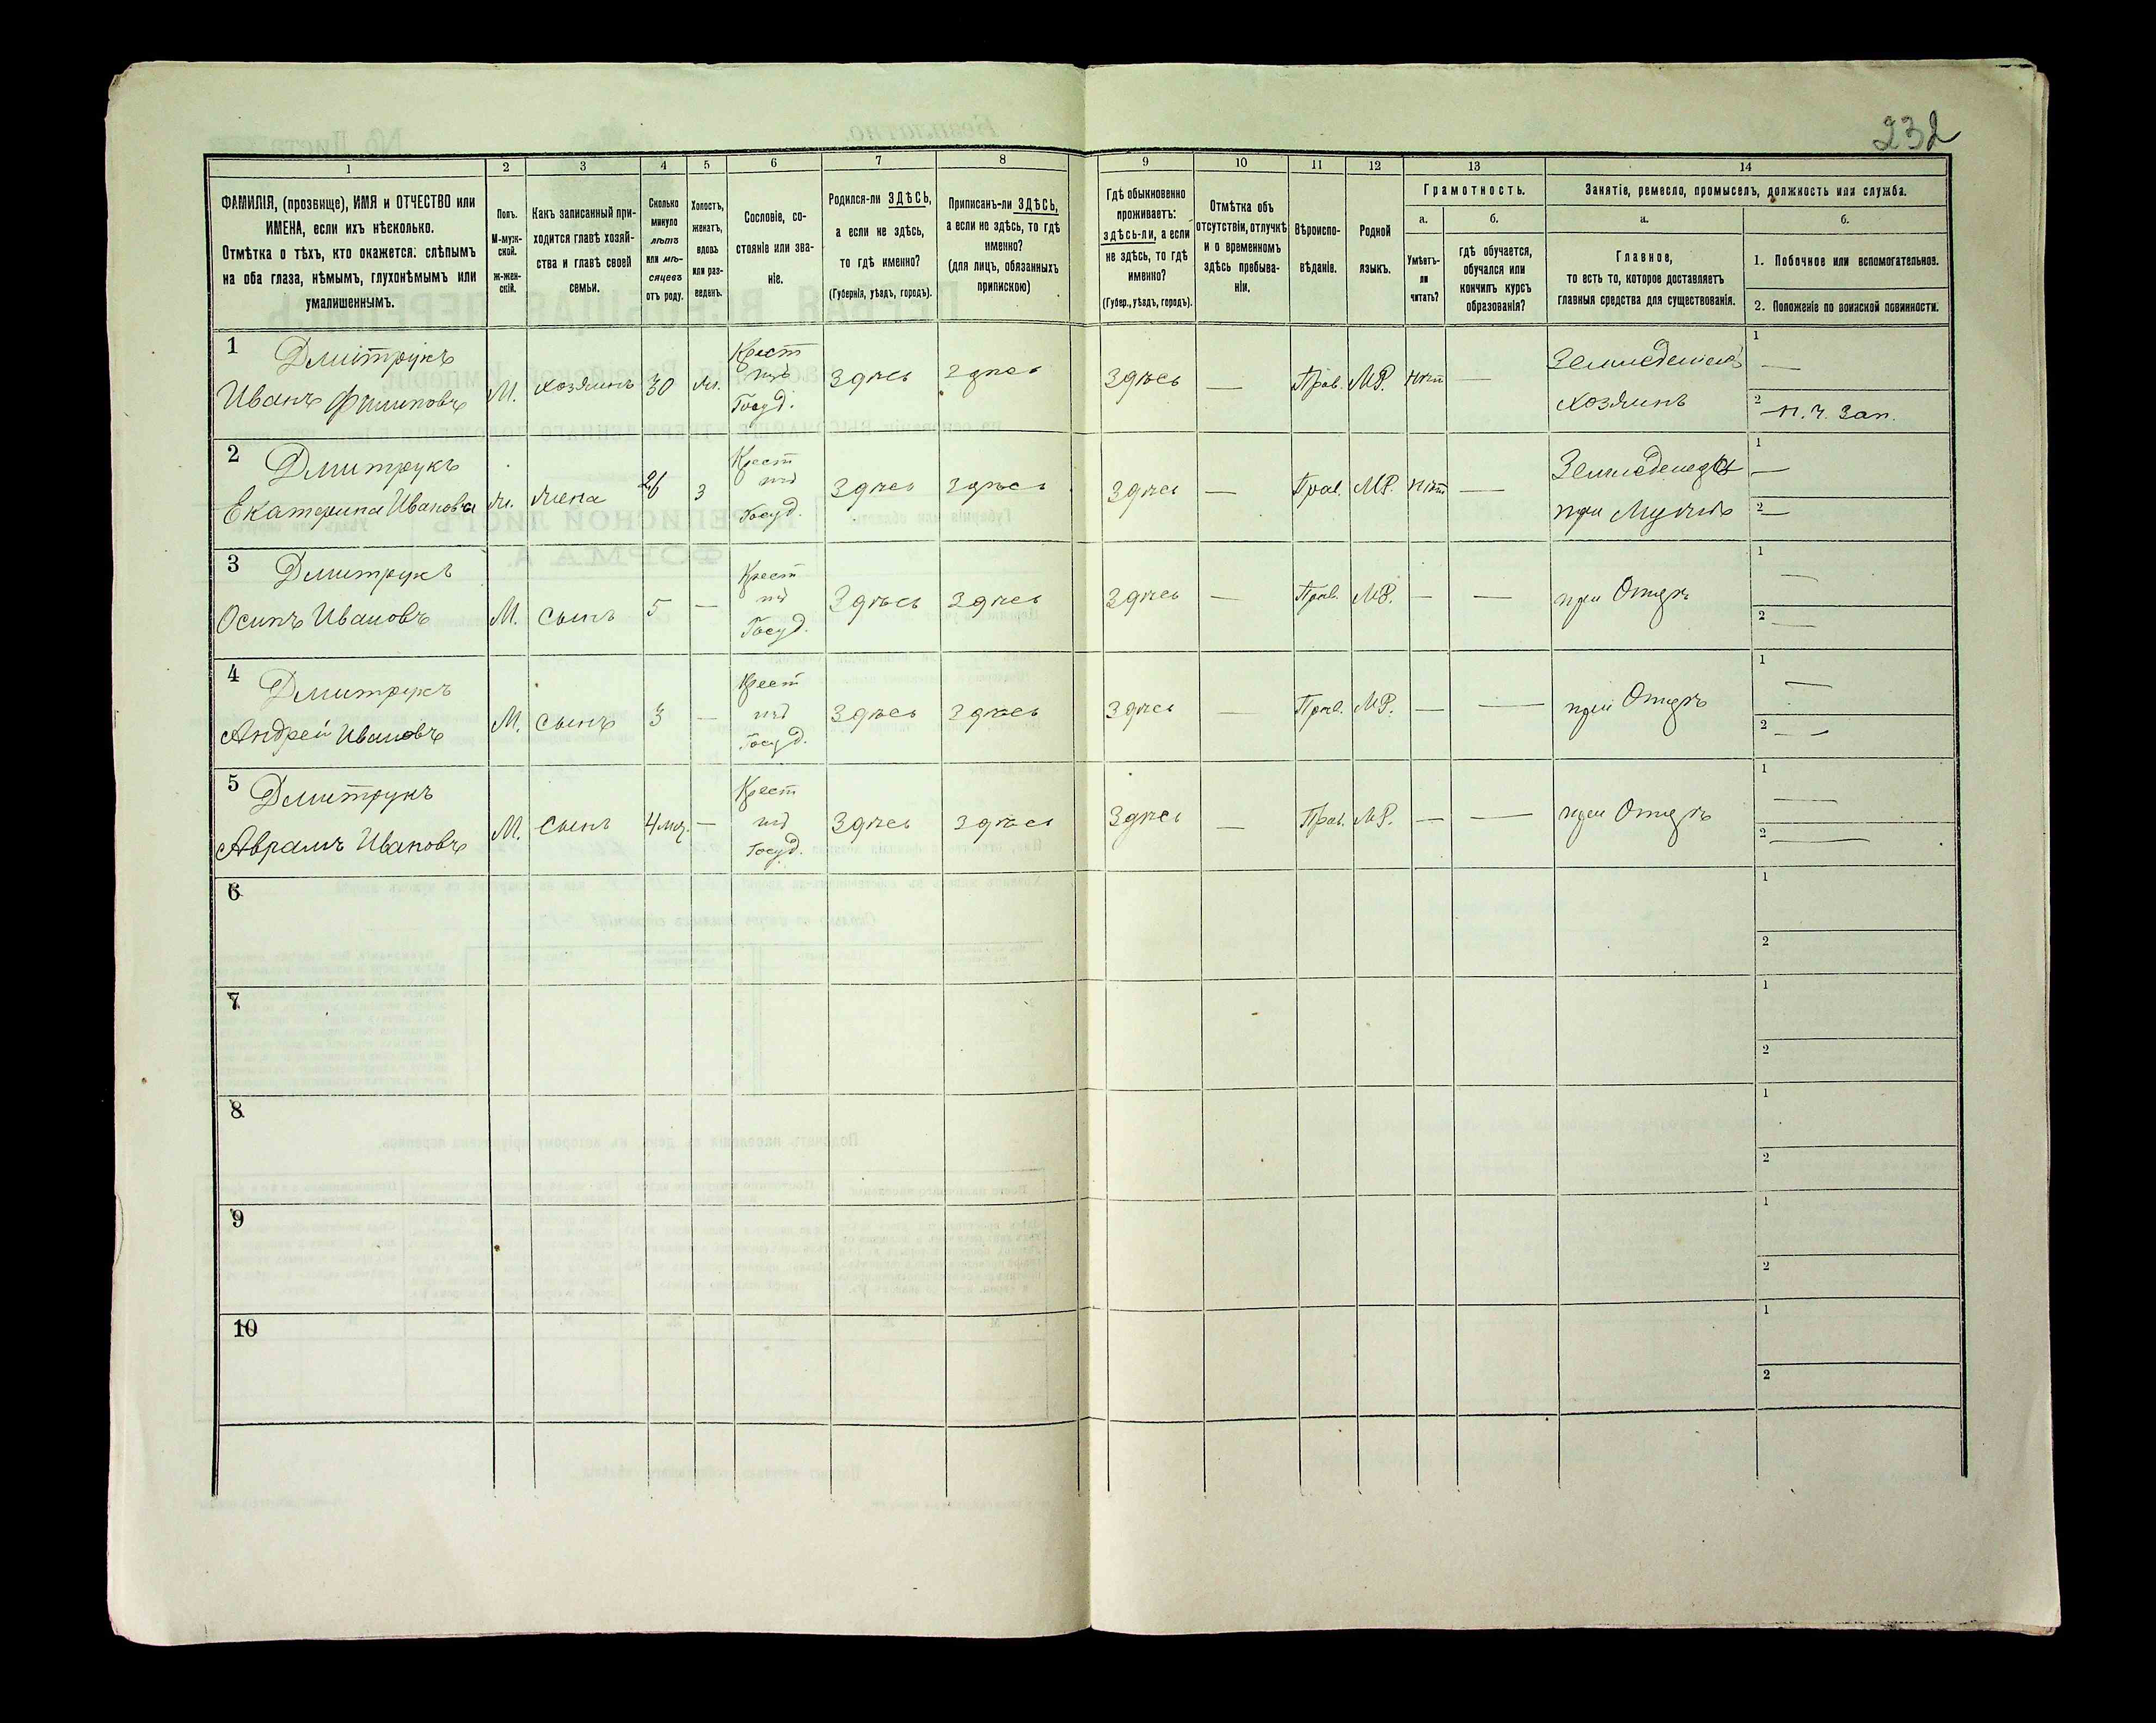 232
1 2 3 4 5 6 7 8 9 10 11 12 13 14
ФАМИЛІЯ, (прозвище), ИМЯ и ОТЧЕСТВО или
ИМЕНА, если ихъ нѣсколько.
Отмѣтка о тѣхъ, кто окажется: слѣпымъ
на оба глаза, нѣмымъ, глухонѣмымъ или
умалишеннымъ.
Полъ.
М-муж-
ской.
ж-жен-
скій.
Какъ записанный при-
ходится главѣ хозяй-
ства и главѣ своей
семьи.
Сколько
минуло
лѣтъ
или мѣ-
сяцевъ
отъ роду.
Холостъ,
женатъ,
вдовъ
или раз-
веденъ.
Сословіе, со-
стояніе или зва-
ніе.
Родился-ли ЗДѢСЬ,
а если не здѣсь,
то гдѣ именно?
(Губернія, уѣздъ, городъ).
Приписанъ-ли ЗДѢСЬ,
а если не здѣсь, то гдѣ
именно?
(для лицъ, обязанныхъ
припискою)
Гдѣ обыкновенно
проживаетъ:
здѣсь-ли, а если
не здѣсь, то гдѣ
именно?
(Губер., уѣздъ, городъ).
Отмѣтка объ
отсутствіи, отлучкѣ
и о временномъ
здѣсь пребыва-
ніи.
Вѣроиспо-
вѣданіе.
Родной
языкъ.
Грамотность.
а.
Умѣетъ-
ли
читать?
б.
гдѣ обучается,
обучался или
кончилъ курсъ
образованія?
Занятіе, ремесло, промыселъ, должность или служба.
а.
Главное,
то есть то, которое доставляетъ
главныя средства для существованія.
б.
1. Побочное или вспомогательное.
2. Положеніе по воинской повинности.
1 Дмитрукъ
Иванъ Филиповъ М. хозяинъ 30 ж. Крест изъ Госуд. Здѣсь Здѣсь Здѣсь — Прав. МР. нѣт — Земледѣлецъ хозяинъ
1 —
2 — н. ч. зап.
2 Дмитрукъ
Екатерина Иванова ж. жена 26 з Крест изъ Госуд. Здѣсь Здѣсь Здѣсь — Прав. МР. нѣт — при Мужѣ
1 —
2 —
3 Дмитрукъ
Осипъ Ивановъ М. сынъ 5 — Крест изъ Госуд. Здѣсь Здѣсь Здѣсь — Прав. МР. — — при Отцѣ
1 —
2 —
4 Дмитрукъ
Андрей Ивановъ М. сынъ 3 — Крест изъ Госуд. Здѣсь Здѣсь Здѣсь — Прав. МР. — — при Отцѣ
1 —
2 —
5 Дмитрукъ
Аврамъ Ивановъ М. сынъ 4 мц. — Крест изъ Госуд. Здѣсь Здѣсь Здѣсь — Прав. МР. — — при Отцѣ
1 —
2 —
6
1
2
7
1
2
8
1
2
9
1
2
10
1
2